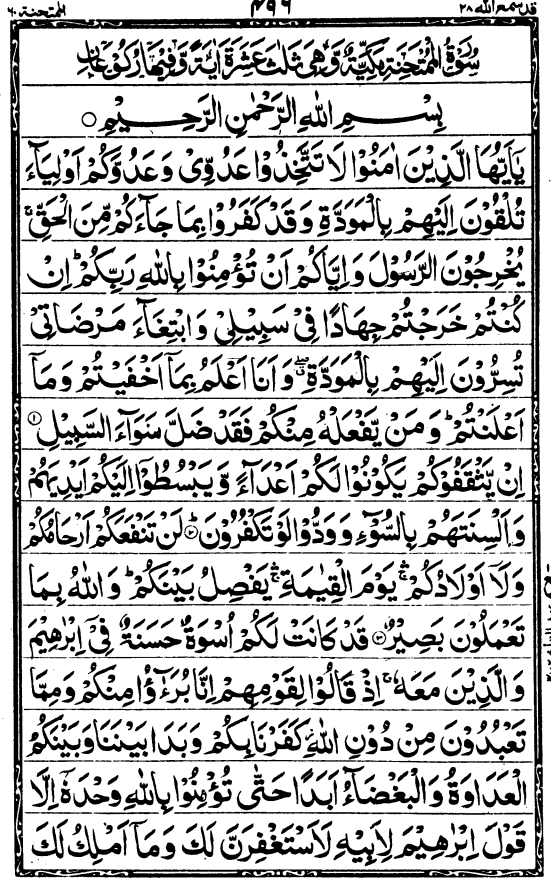 قدسمع الله ٢٨
٤٩٦
الممتحنة ٦٠
سُوْرَةُ الْمُمْتَحِنَةِ مَكِّيَّةٌ وَّهِىَ ثَلٰثَ عَشَرَةَ اٰيَةً وَّفِيْهَا رُكُوْعَانِ
بِسْمِ اللهِ الرَّحْمٰنِ الرَّحِيْمِ ○
يٰۤاَيُّهَا الَّذِيْنَ اٰمَنُوْا لَا تَتَّخِذُوْا عَدُوِّىْ وَ عَدُوَّكُمْ اَوْلِيَآءَ
تُلْقُوْنَ اِلَيْهِمْ بِالْمَوَدَّةِ وَ قَدْ كَفَرُوْا بِمَا جَآءَكُمْ مِّنَ الْحَقِّ ۚ
يُخْرِجُوْنَ الرَّسُوْلَ وَ اِيَّاكُمْ اَنْ تُؤْمِنُوْا بِاللهِ رَبِّكُمْ ؕ اِنْ
كُنْتُمْ خَرَجْتُمْ جِهَادًا فِىْ سَبِيْلِىْ وَ ابْتِغَآءَ مَرْضَاتِىْ
تُسِرُّوْنَ اِلَيْهِمْ بِالْمَوَدَّةِ ۖ وَ اَنَا اَعْلَمُ بِمَاۤ اَخْفَيْتُمْ وَ مَاۤ
اَعْلَنْتُمْ ؕ وَ مَنْ يَّفْعَلْهُ مِنْكُمْ فَقَدْ ضَلَّ سَوَآءَ السَّبِيْلِ ۝۱
اِنْ يَّثْقَفُوْكُمْ يَكُوْنُوْا لَكُمْ اَعْدَآءً وَّ يَبْسُطُوْۤا اِلَيْكُمْ اَيْدِيَهُمْ
وَ اَلْسِنَتَهُمْ بِالسُّوْٓءِ وَ وَدُّوْا لَوْ تَكْفُرُوْنَ ۝۲ؕ لَنْ تَنْفَعَكُمْ اَرْحَامُكُمْ
وَ لَاۤ اَوْلَادُكُمْ ۛۚ يَوْمَ الْقِيٰمَةِ ۛۚ يَفْصِلُ بَيْنَكُمْ ؕ وَ اللهُ بِمَا
تَعْمَلُوْنَ بَصِيْرٌ ۝۳ قَدْ كَانَتْ لَكُمْ اُسْوَةٌ حَسَنَةٌ فِىْۤ اِبْرٰهِيْمَ
وَ الَّذِيْنَ مَعَهٗ ۚ اِذْ قَالُوْا لِقَوْمِهِمْ اِنَّا بُرَءٰٓؤُا مِنْكُمْ وَ مِمَّا
تَعْبُدُوْنَ مِنْ دُوْنِ اللهِ ؗ كَفَرْنَا بِكُمْ وَ بَدَا بَيْنَنَا وَ بَيْنَكُمُ
الْعَدَاوَةُ وَ الْبَغْضَآءُ اَبَدًا حَتّٰى تُؤْمِنُوْا بِاللهِ وَحْدَهٗۤ اِلَّا
قَوْلَ اِبْرٰهِيْمَ لِاَبِيْهِ لَاَسْتَغْفِرَنَّ لَكَ وَ مَاۤ اَمْلِكُ لَكَ